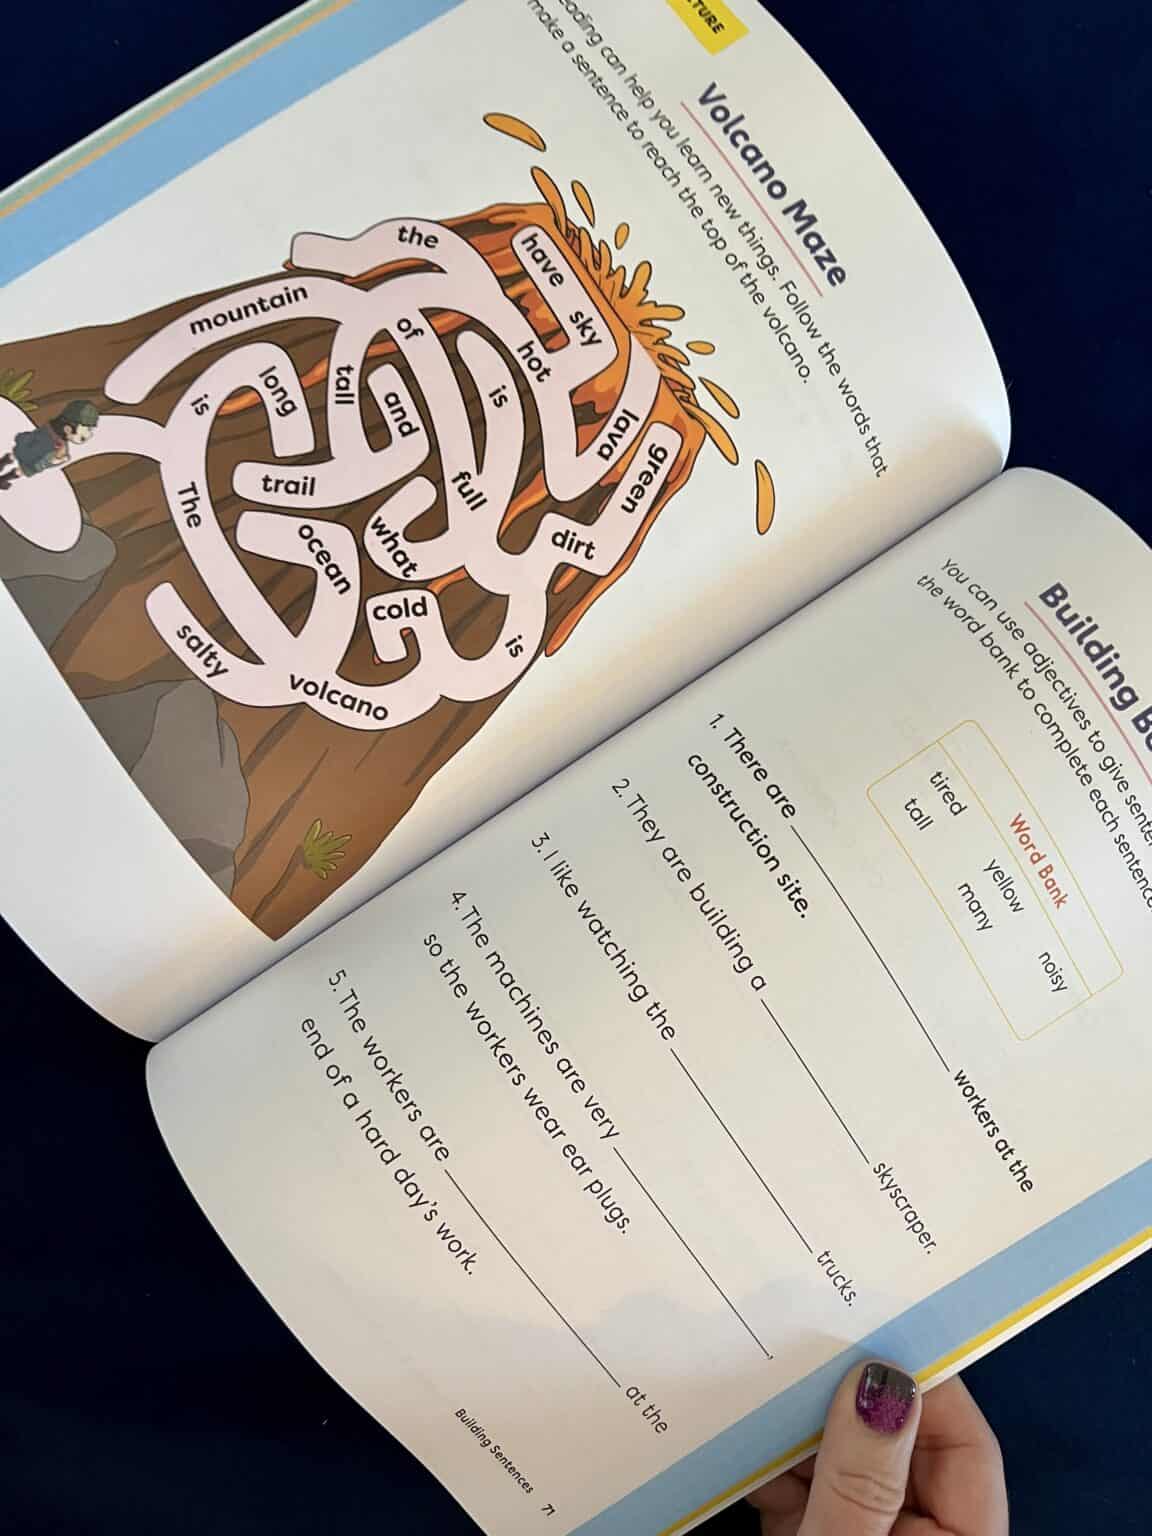 TURE
Volcano Maze
eading can help you learn new things. Follow the words that
make a sentence to reach the top of the volcano.
have
sky
the
hot
lava
green
mountain
of
is
tall
and
full
dirt
long
is
trail
what
The
ocean
cold
is
salty
volcano
Building B
You can use adjectives to give
the word bank to complete each sentence
Word Bank
tired yellow noisy
tall many
1. There are ____ workers at the
construction site.
2. They are building a ____ skyscraper.
3. I like watching the ____ trucks.
4. The machines are very ____,
so the workers wear ear plugs.
5. The workers are ____ at the
end of a hard day's work.
Building Sentences 71